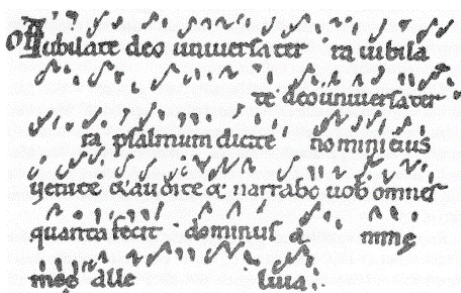 Iubilate deo universa ter ra iubila
te deo universa ter
ra psalmum dicite nomini eius
uenite & audite & narrabo uob omnes
quanta fecit dominus a nimę
meę alle luia.